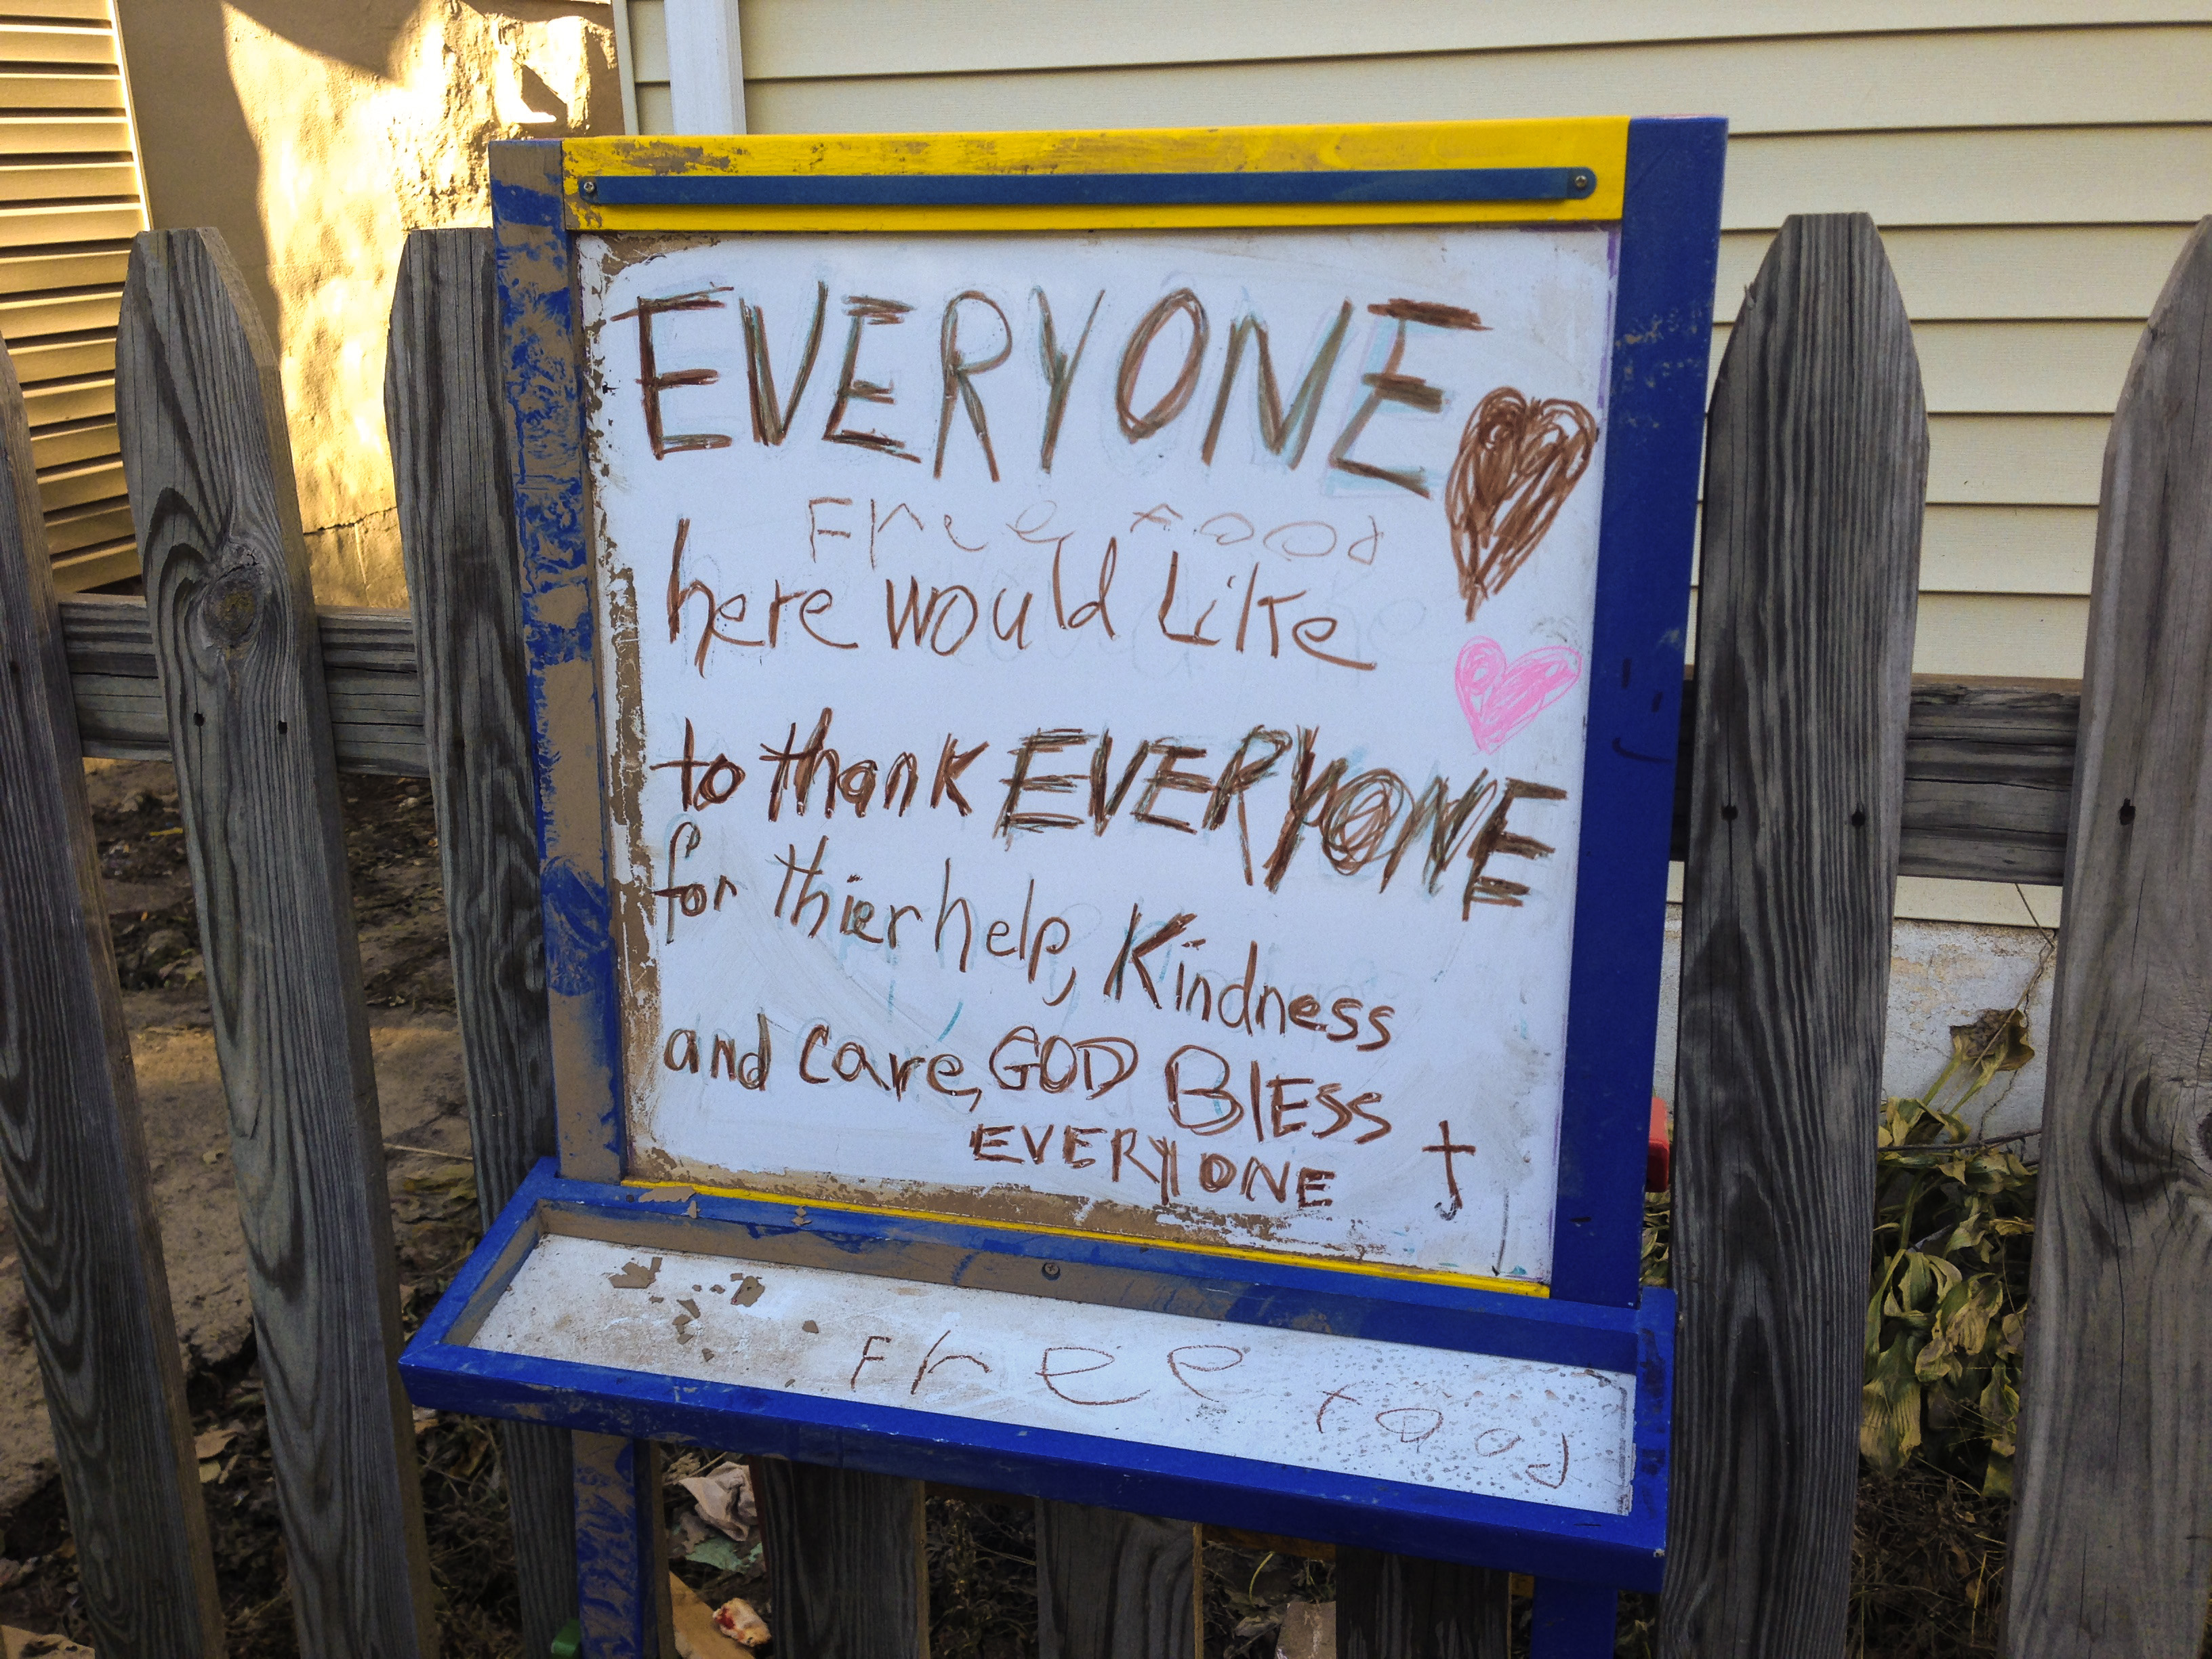 EVERYONE
Free food
here would Like
to thank EVERYONE
for thier help, Kindness
and care, GOD BLESS
EVERYONE
Free food